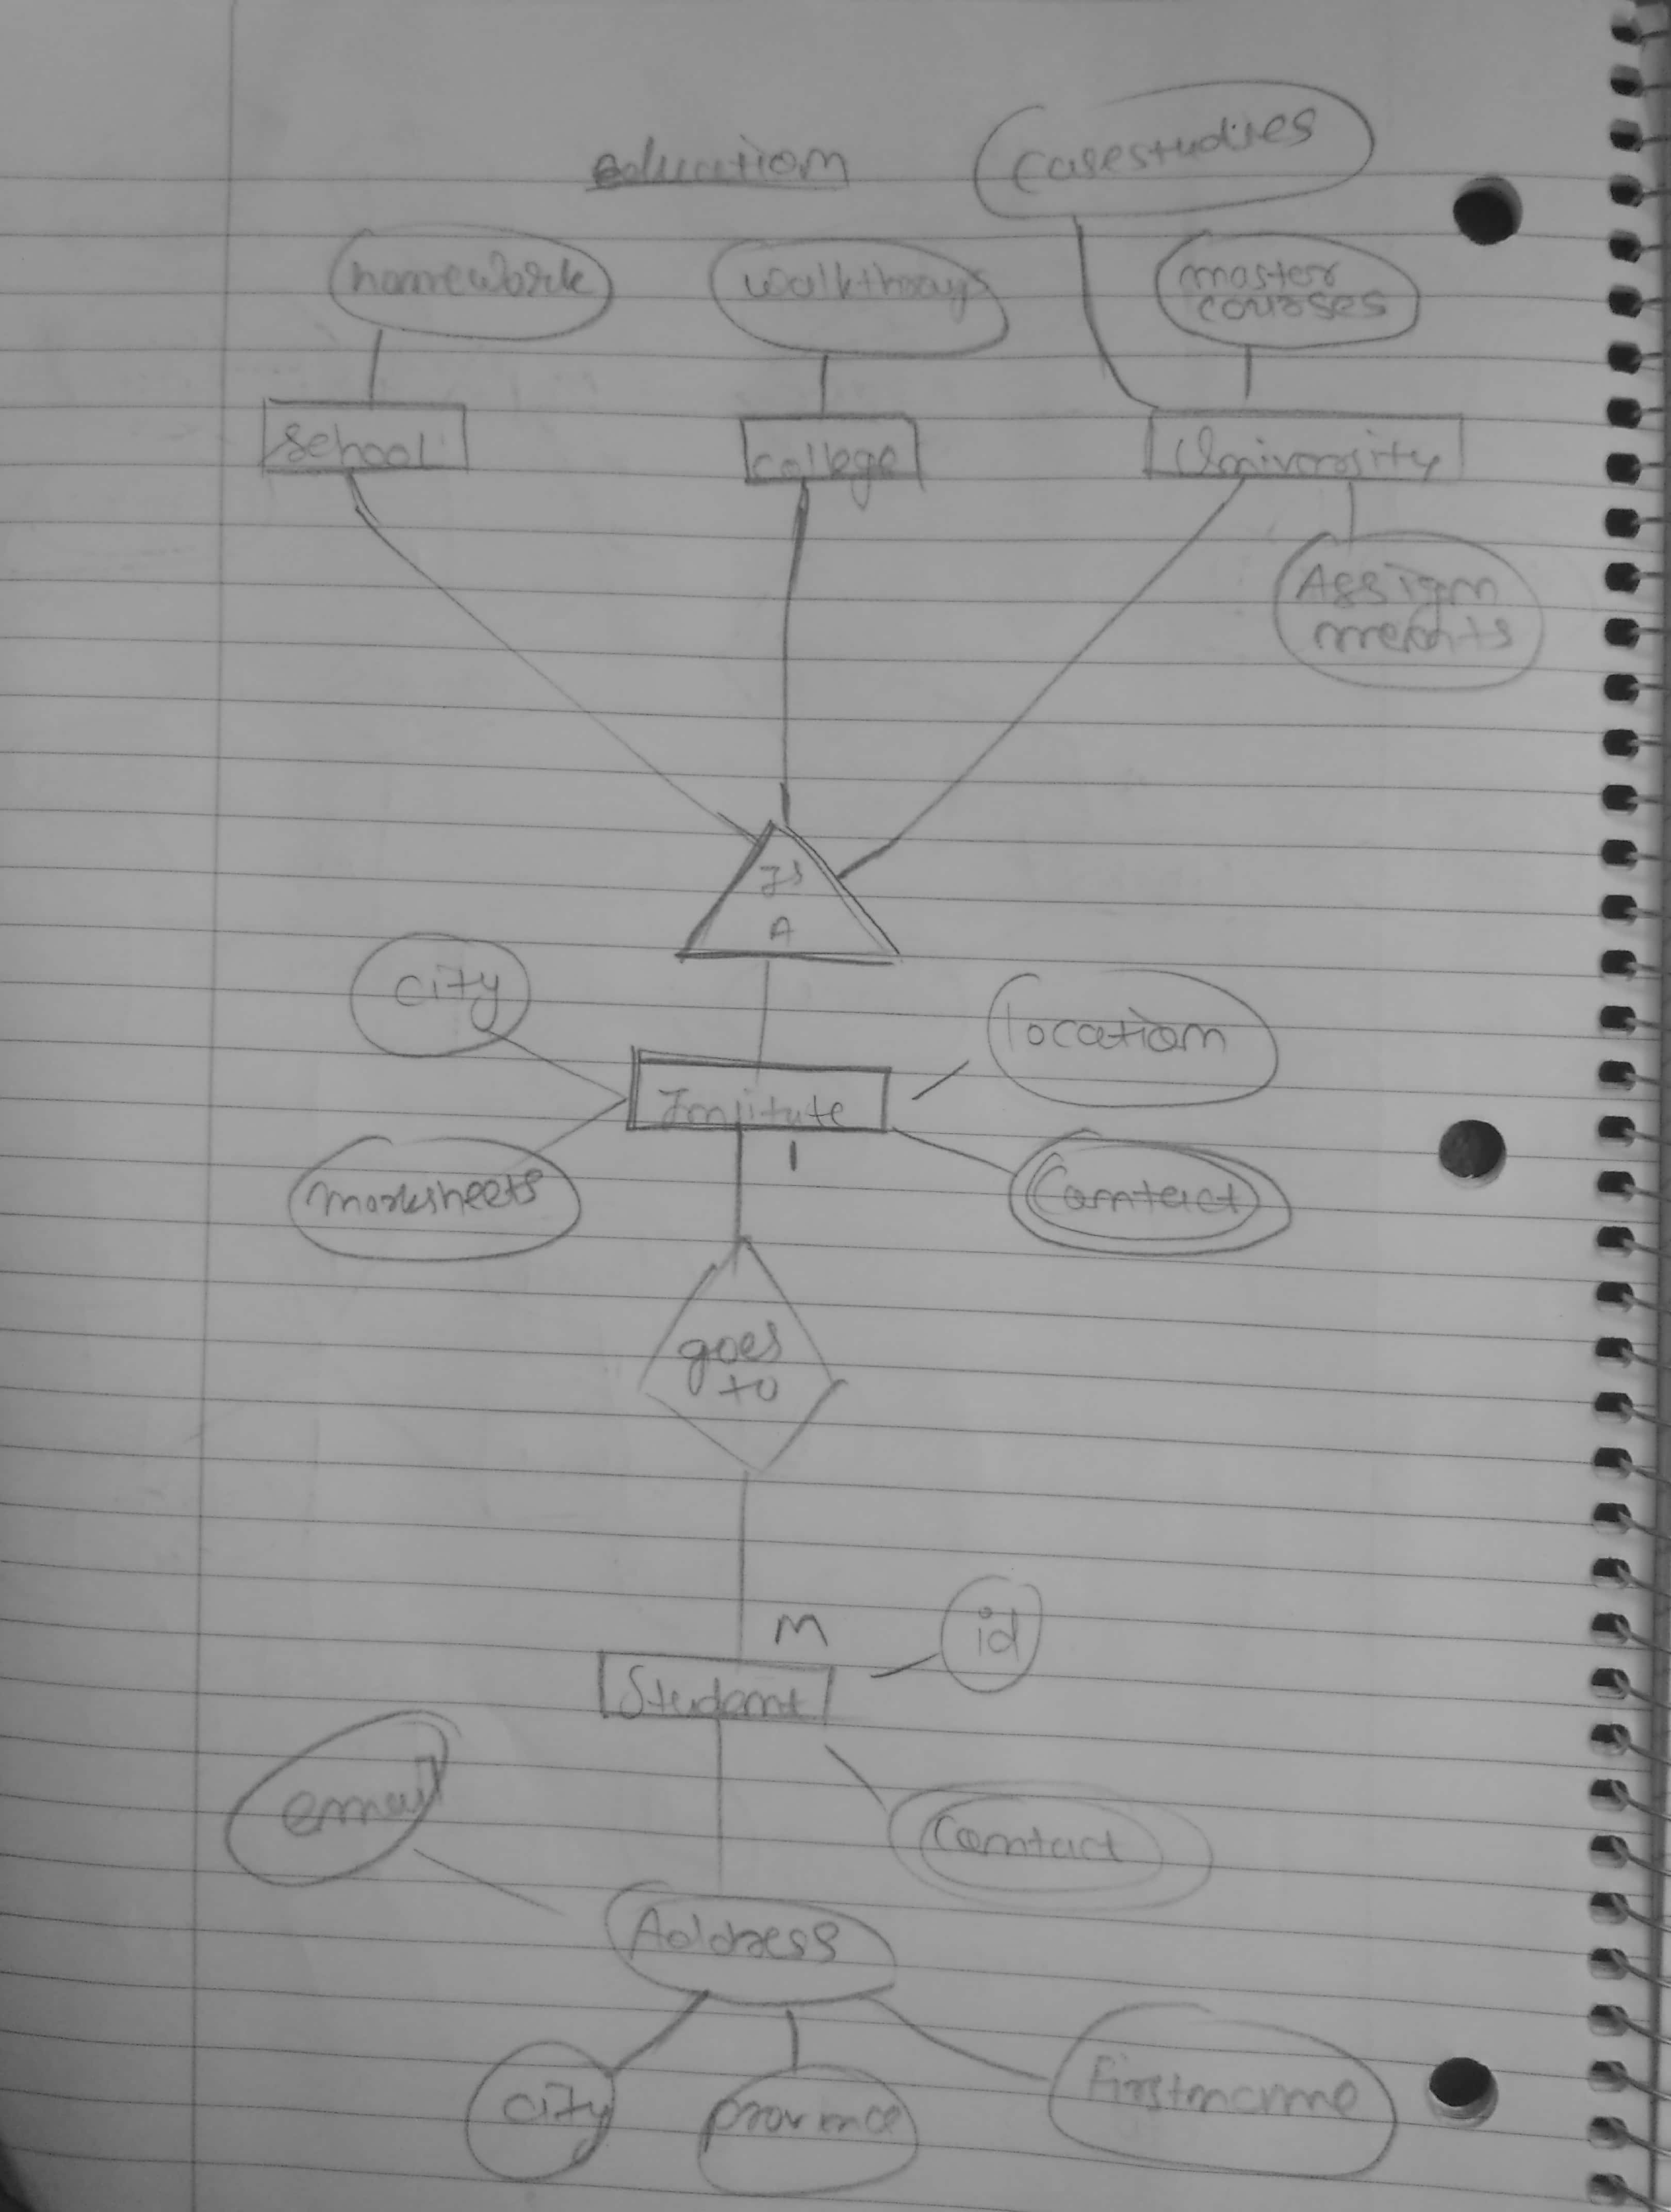 education
casestudies
homework
walkthroughs
master
courses
school
college
University
Assign
ments
Is
A
city
location
Institute
1
marksheets
Contact
goes
to
M
id
Student
email
Contact
Address
city
province
Firstname